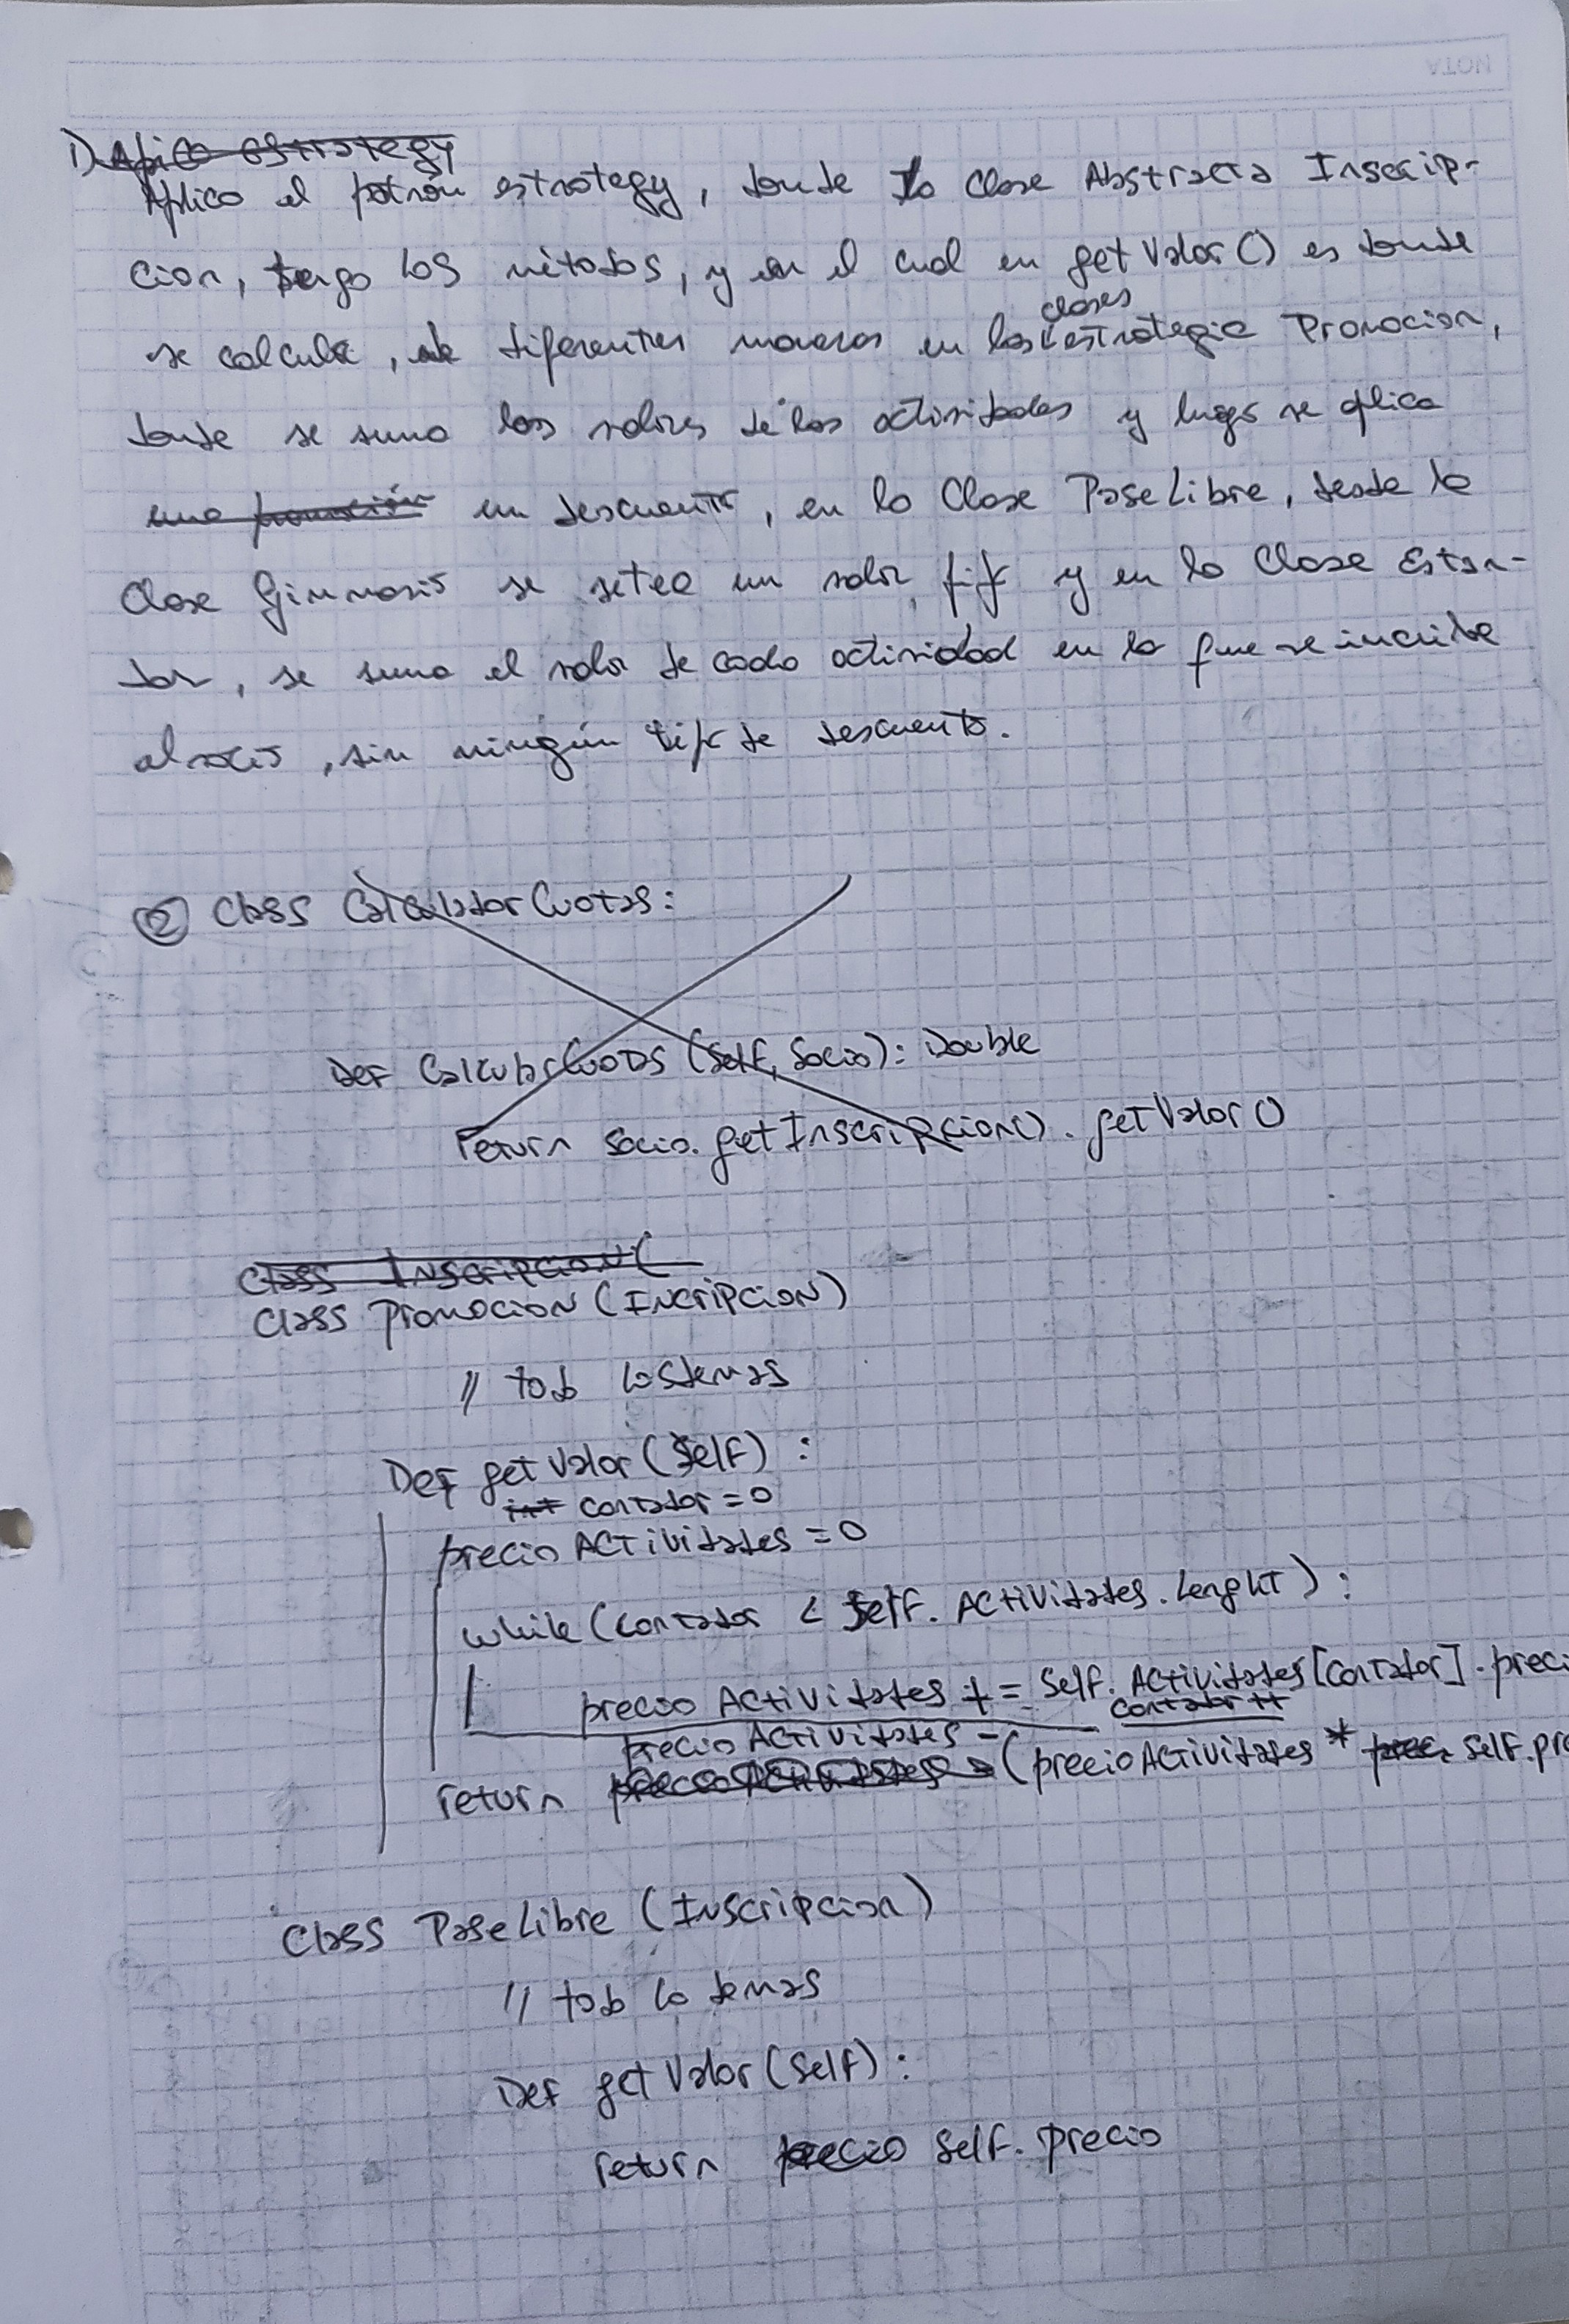 NOTA
1) Aplico estrategy
Aplico el patrón estrategy, donde la Clase Abstracta Inscrip-
cion, tengo los métodos, y en el cual en getValor() es donde
se calcula, de diferentes maneras en las clases estrategia Promocion,
donde se suma los valores de las actividades y luego se aplica
una promoción un descuento, en la Clase PaseLibre, desde la
Clase Gimnasio se setea un valor fijo y en la Clase Estan-
dar, se suma el valor de cada actividad en la que se incribe
al socio, sin ningún tipo de descuento.
② Class CalculadorCuotas:
Def CalcularCuotas (Self, Socio): Double
return socio.getInscripcion().getValor()
Class Inscripcion(
Class Promocion (Incripcion)
// todo los demas
Def getValor (Self) :
int contador = 0
precio Actividades = 0
while (contador < Self. Actividades. Lenght) :
precio Actividades += Self. Actividades [contador] . preci
contador ++
precio Actividades -
return (precio Actividades * Self.pre
Class PaseLibre (Inscripcion)
// todo lo demas
Def getValor (Self) :
return precio Self. precio